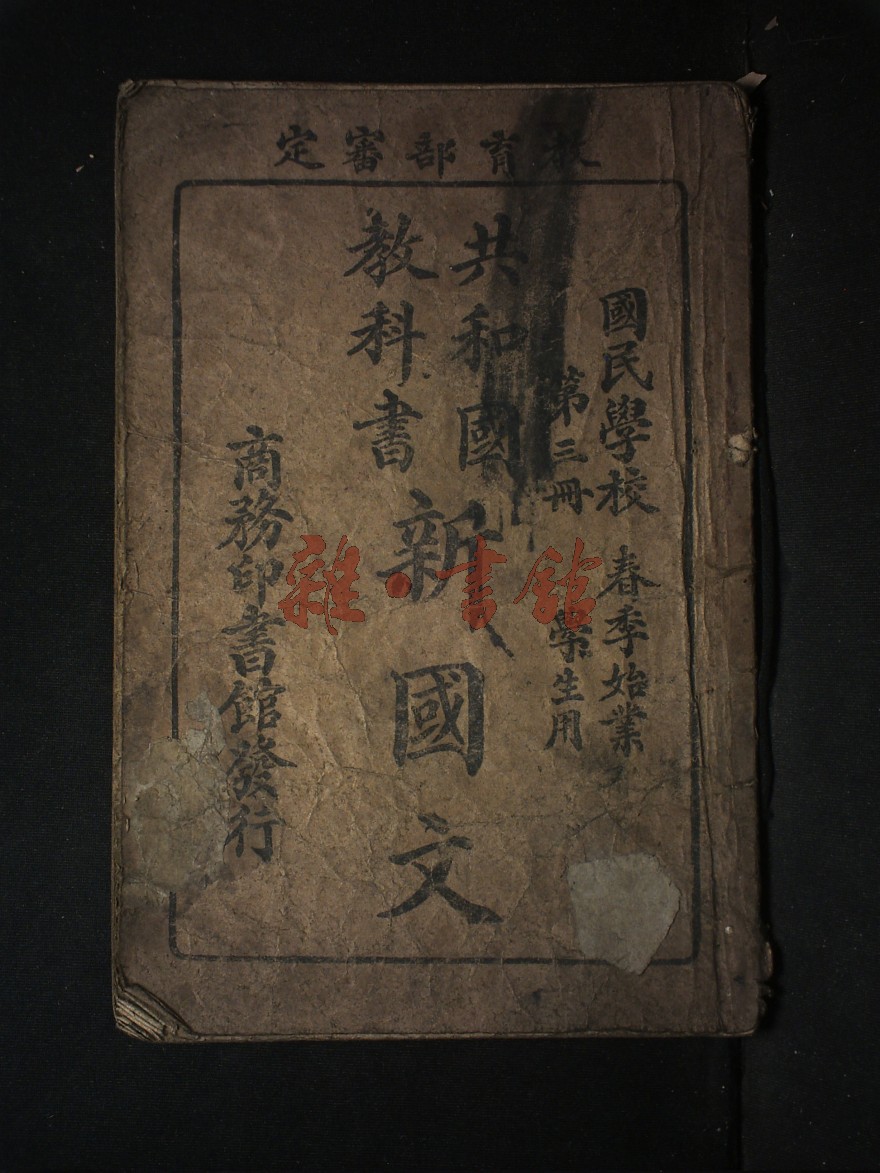 教育部審定
國民學校 春季始業
第三冊 學生用
共和國
教科書
新國文
商務印書館發行
雜·書館